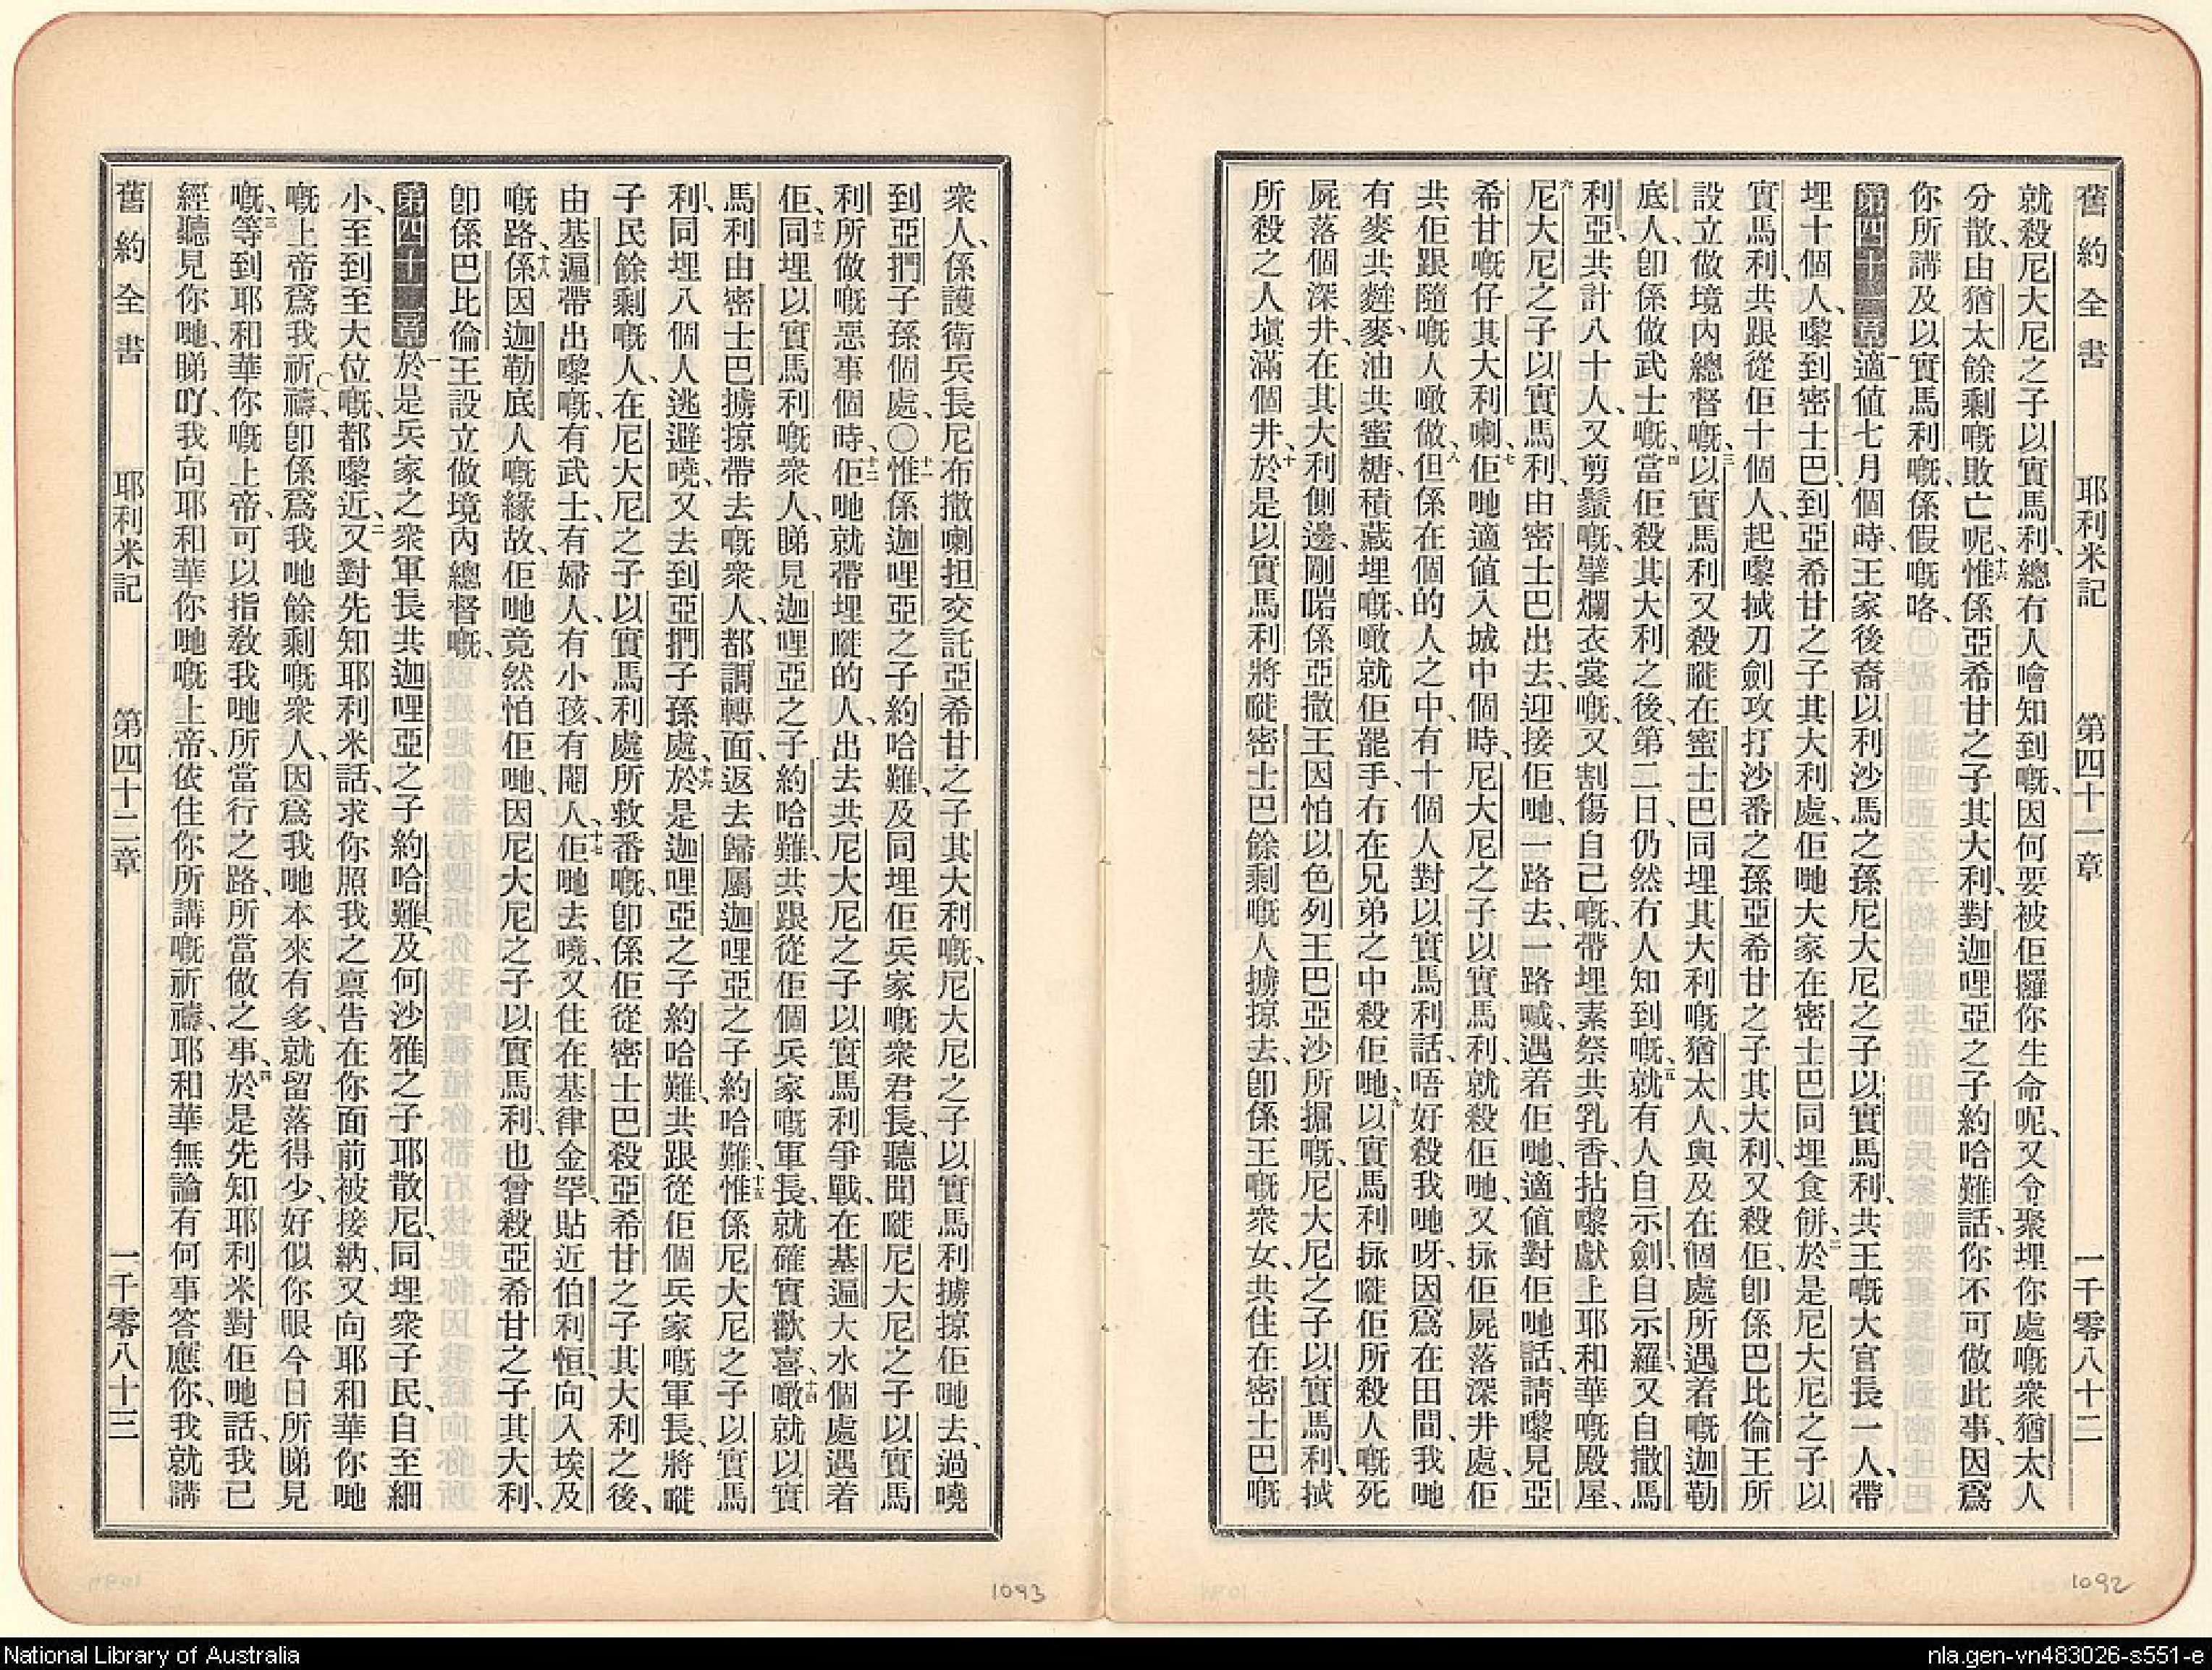 舊約全書 耶利米記 第四十一章 一千零八十二
就殺尼大尼之子以實馬利、總冇人噲知到嘅、因何要被佢攞你生命呢、又令聚埋你處嘅衆猶太人
分散、由猶太餘剩嘅敗亡呢、十六惟係亞希甘之子其大利、對迦哩亞之子約哈難話、你不可做此事、因爲
你所講及以實馬利嘅、係假嘅咯、
第四十一章 一適值七月個時、王家後裔以利沙馬之孫尼大尼之子以實馬利、共王嘅大官長一人、帶
埋十個人、嚟到密士巴、到亞希甘之子其大利處、佢哋大家在密士巴同埋食餅、二於是尼大尼之子以
實馬利、共跟從佢十個人、起嚟拭刀劍攻打沙番之孫亞希甘之子其大利、又殺佢、卽係巴比倫王所
設立做境內總督嘅、三以實馬利又殺嘥在蜜士巴同埋其大利嘅猶太人與及在個處所遇着嘅迦勒
底人、卽係做武士嘅、四當佢殺其大利之後、第二日、仍然冇人知到嘅、五就有人自示劍、自示羅、又自撒馬
利亞、共計八十人、又剪鬚嘅、擘爛衣裳嘅、又割傷自己嘅、帶埋素祭共乳香、拈嚟獻上耶和華嘅殿屋、
六尼大尼之子以實馬利、由密士巴出去、迎接佢哋、一路去、一路喊、遇着佢哋、適值對佢哋話、請嚟見亞
希甘嘅仔其大利喇、七佢哋適值入城中個時、尼大尼之子以實馬利、就殺佢哋、又拯佢屍落深井處、佢
共佢跟隨嘅人噉做、八但係在個的人之中、有十個人對以實馬利話、唔好殺我哋呀、因爲在田間、我哋
有麥共麰麥、油共蜜糖、積藏埋嘅、噉就佢罷手、冇在兄弟之中殺佢哋、九以實馬利拯嘥佢所殺人嘅死
屍落個深井、在其大利側邊、剛啱係亞撒王因怕以色列王巴亞沙所掘嘅、尼大尼之子以實馬利、拭
所殺之人塡滿個井、十於是以實馬利將嘥密士巴餘剩嘅人擄掠去、卽係王嘅衆女、共住在密士巴嘅
1092
衆人、係護衛兵長尼布撒喇担交託亞希甘之子其大利嘅、尼大尼之子以實馬利擄掠佢哋去、過嘵
到亞捫子孫個處、〇十一惟係迦哩亞之子約哈難、及同埋佢兵家嘅衆君長、聽聞嘥尼大尼之子以實馬
利所做嘅惡事個時、十二佢哋就帶埋嘥的人、出去共尼大尼之子以實馬利爭戰、在基遍大水個處遇着
佢、十三同埋以實馬利嘅衆人、睇見迦哩亞之子約哈難、共跟從佢個兵家嘅軍長、就確實歡喜、十四噉就以實
馬利由密士巴擄掠帶去嘅衆人、都調轉面、返去歸屬迦哩亞之子約哈難、十五惟係尼大尼之子以實馬
利、同埋八個人逃避嘵、又去到亞捫子孫處、十六於是迦哩亞之子約哈難、共跟從佢個兵家嘅軍長、將嘥
子民餘剩嘅人、在尼大尼之子以實馬利處所救番嘅、卽係佢從密士巴殺亞希甘之子其大利之後、
由基遍帶出嚟嘅、有武士、有婦人、有小孩、有閹人、十七佢哋去嘵、又住在基律金罕、貼近伯利恒、向入埃及
嘅路、十八係因迦勒底人嘅緣故、佢哋竟然怕佢哋、因尼大尼之子以實馬利、也曾殺亞希甘之子其大利、
卽係巴比倫王設立做境內總督嘅、
第四十二章 一於是兵家之衆軍長共迦哩亞之子約哈難、及何沙雅之子耶散尼、同埋衆子民、自至細
小、至到至大位嘅、都嚟近、二又對先知耶利米話、求你照我之禀告在你面前被接納、又向耶和華你哋
嘅上帝爲我祈禱、卽係爲我哋餘剩嘅衆人、因爲我哋本來有多、就留落得少、好似你眼今日所睇見
嘅、三等到耶和華你嘅上帝、可以指敎我哋所當行之路、所當做之事、四於是先知耶利米對佢哋話、我已
經聽見你哋、睇吖、我向耶和華你哋嘅上帝、依住你所講嘅祈禱、耶和華無論有何事答應你、我就講
舊約全書 耶利米記 第四十二章 一千零八十三
1093
National Library of Australia
nla.gen-vn483026-s551-e